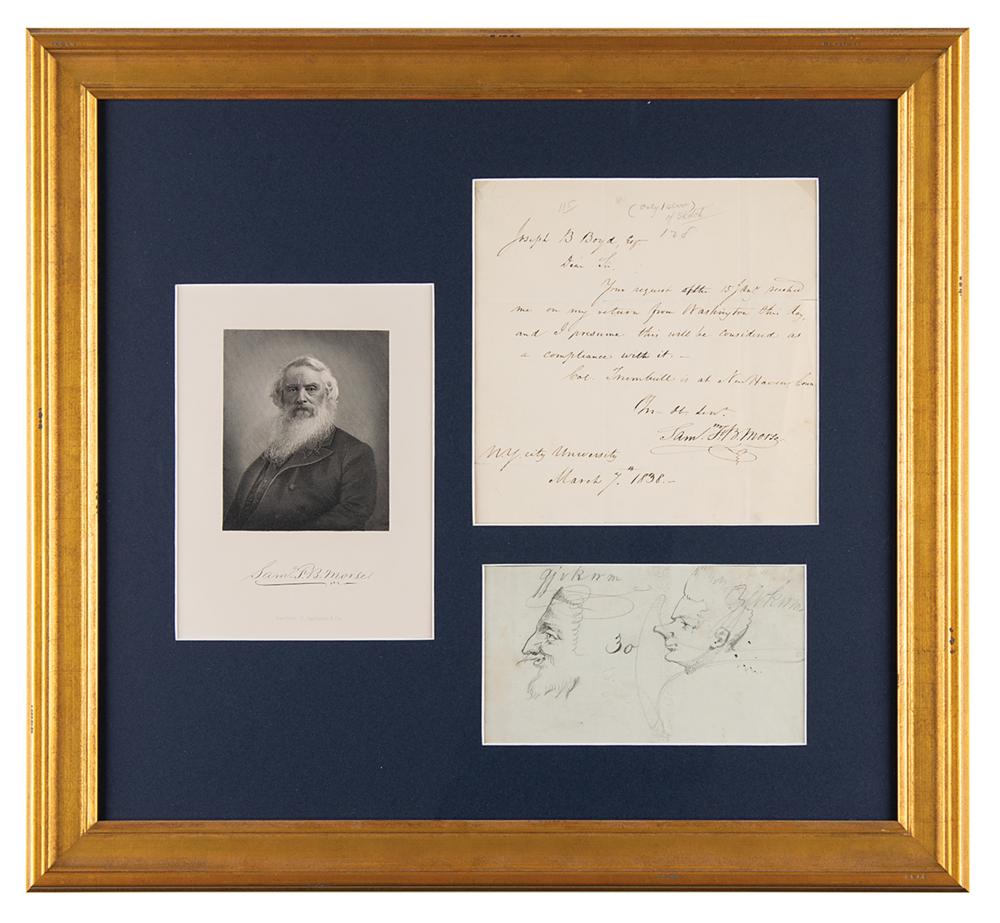 Sam.l F. B. Morse
115
(Only 1 show)
of Sketch
128
Joseph B Boyd, Esq
Dear Sir,
Your request of the 15 Jan.y reached
me on my return from Washington this day,
and I presume this will be considered as
a compliance with it. –
Col. Trumbull is at New Haven, Conn
Yr. Ob. Servt.
Sam.l F. B. Morse,
N Y. city University
March 7.th 1838. –
gjvkwm
30